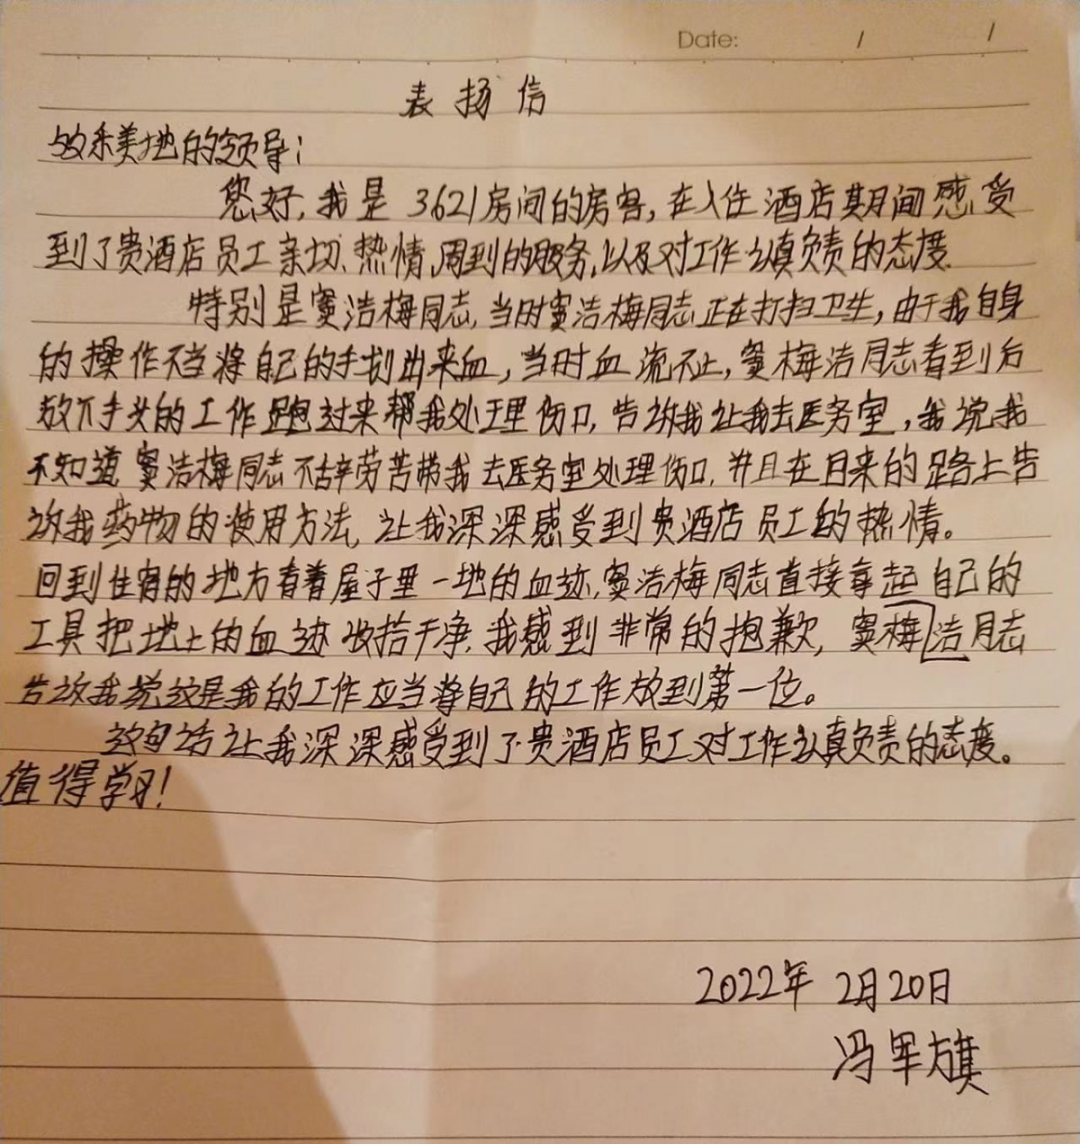 Date: / /
表扬信
致禾美地的领导：
您好，我是3621房间的房客，在入住酒店期间感受
到了贵酒店员工亲切、热情、周到的服务，以及对工作认真负责的态度.
特别是窦浩梅同志，当时窦浩梅同志正在打扫卫生，由于我自身
的操作不当将自己的手划出来血，当时血流不止，窦梅浩同志看到后
放下手头的工作跑过来帮我处理伤口，告诉我让我去医务室，我说我
不知道，窦浩梅同志不怕辛劳苦带我去医务室处理伤口，并且在回来的路上告
诉我药物的使用方法，让我深深感受到贵酒店员工的热情。
回到住宿的地方看着屋子里一地的血迹，窦浩梅同志直接拿起自己的
工具把地上的血迹收拾干净，我感到非常的抱歉，窦梅浩同志
告诉我说这是我的工作应当将自己的工作放到第一位。
这句话让我深深感受到了贵酒店员工对工作认真负责的态度。
值得学习！
2022年2月20日
冯军旗